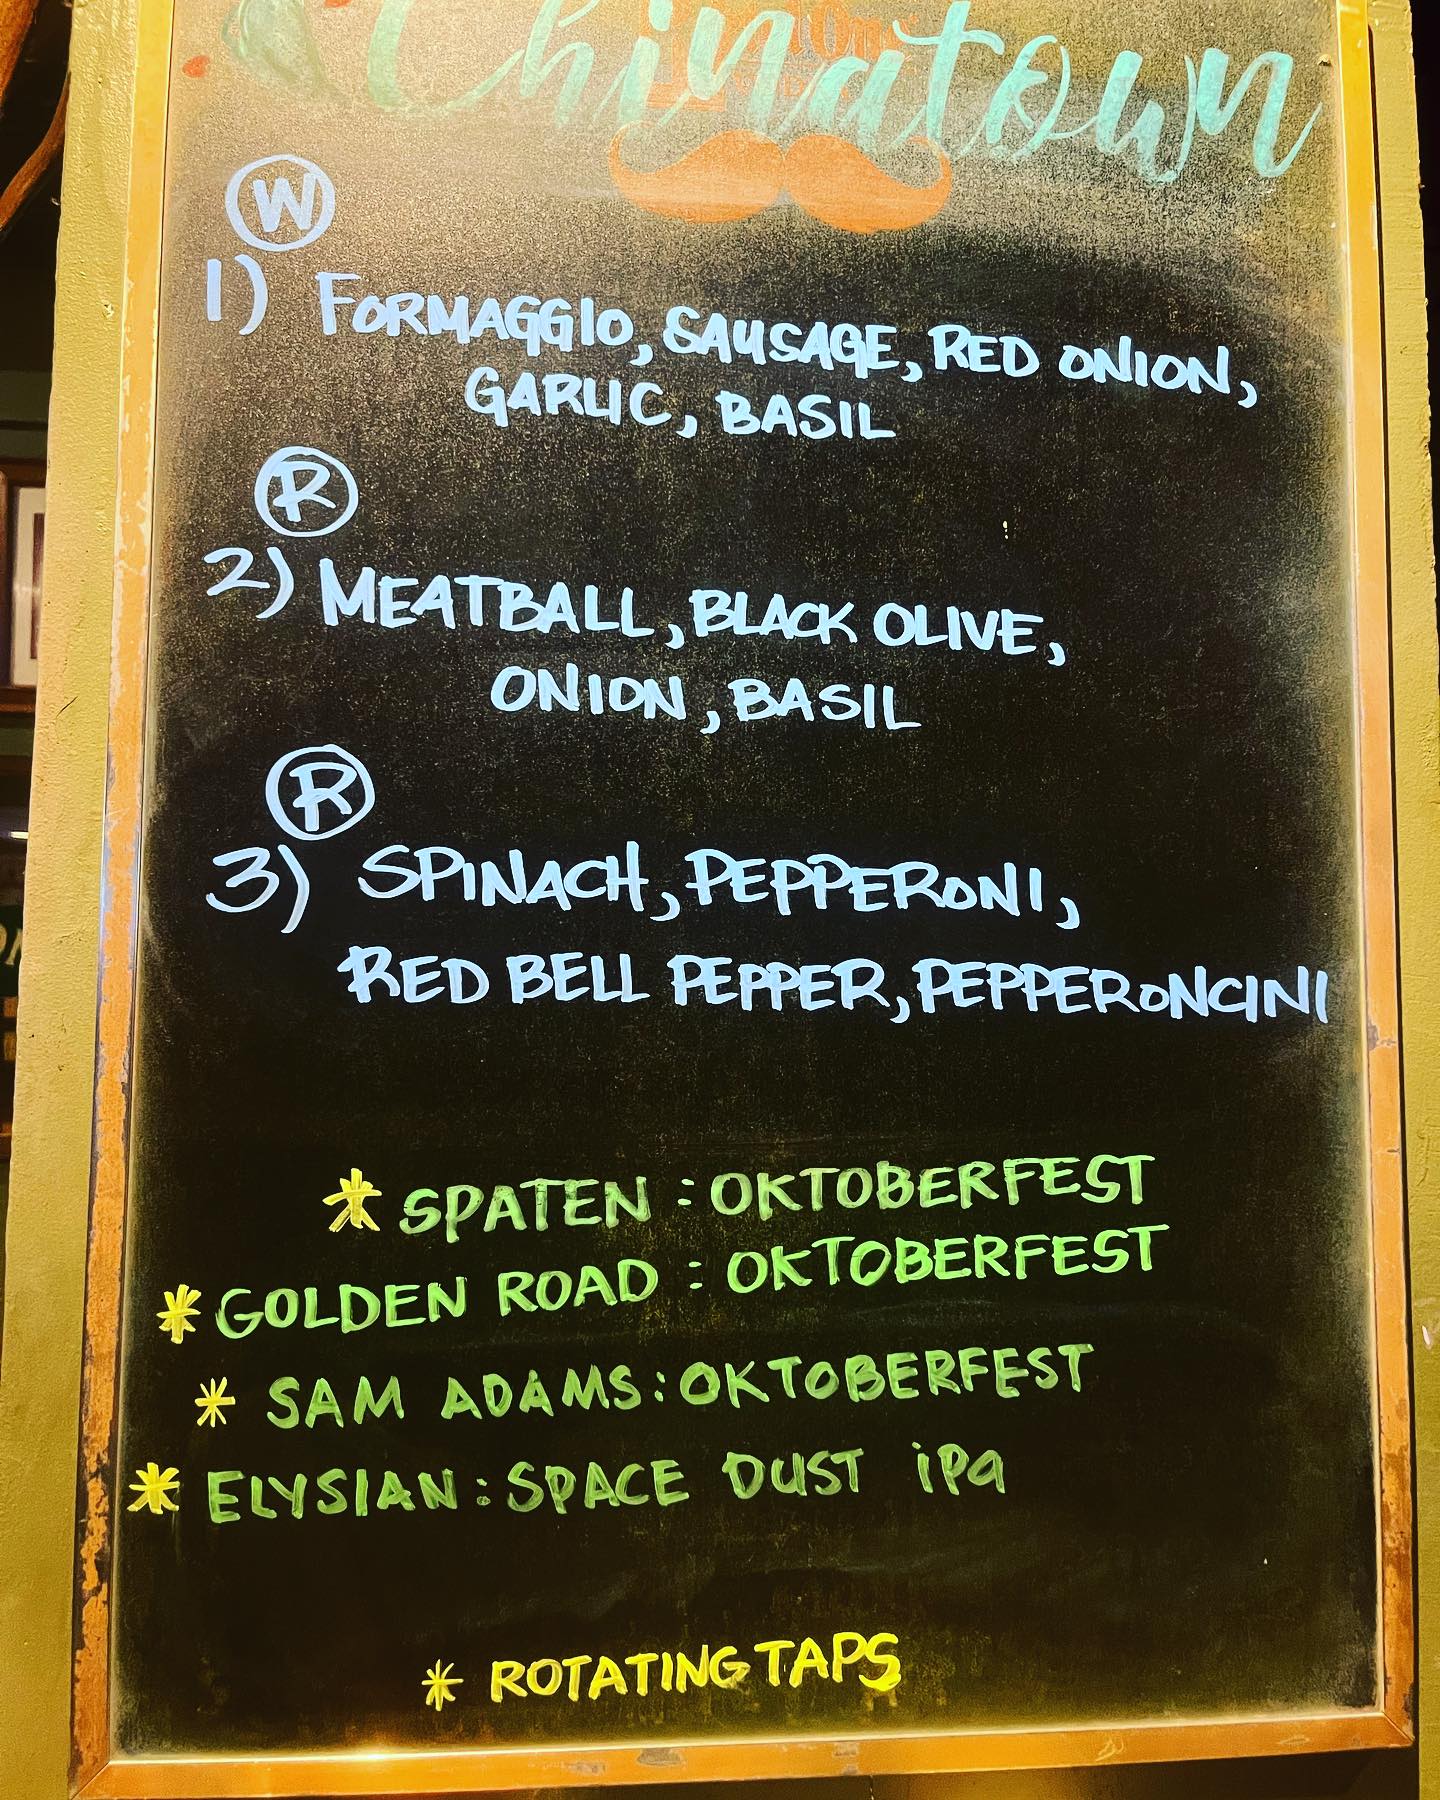 Chinatown
W
1) FORMAGGIO, SAUSAGE, RED ONION,
GARLIC, BASIL
R
2) MEATBALL, BLACK OLIVE,
ONION, BASIL
R
3) SPINACH, PEPPERONI,
RED BELL PEPPER, PEPPERONCINI
* SPATEN : OKTOBERFEST
* GOLDEN ROAD : OKTOBERFEST
* SAM ADAMS : OKTOBERFEST
* ELYSIAN : SPACE DUST iPa
* ROTATING TAPS